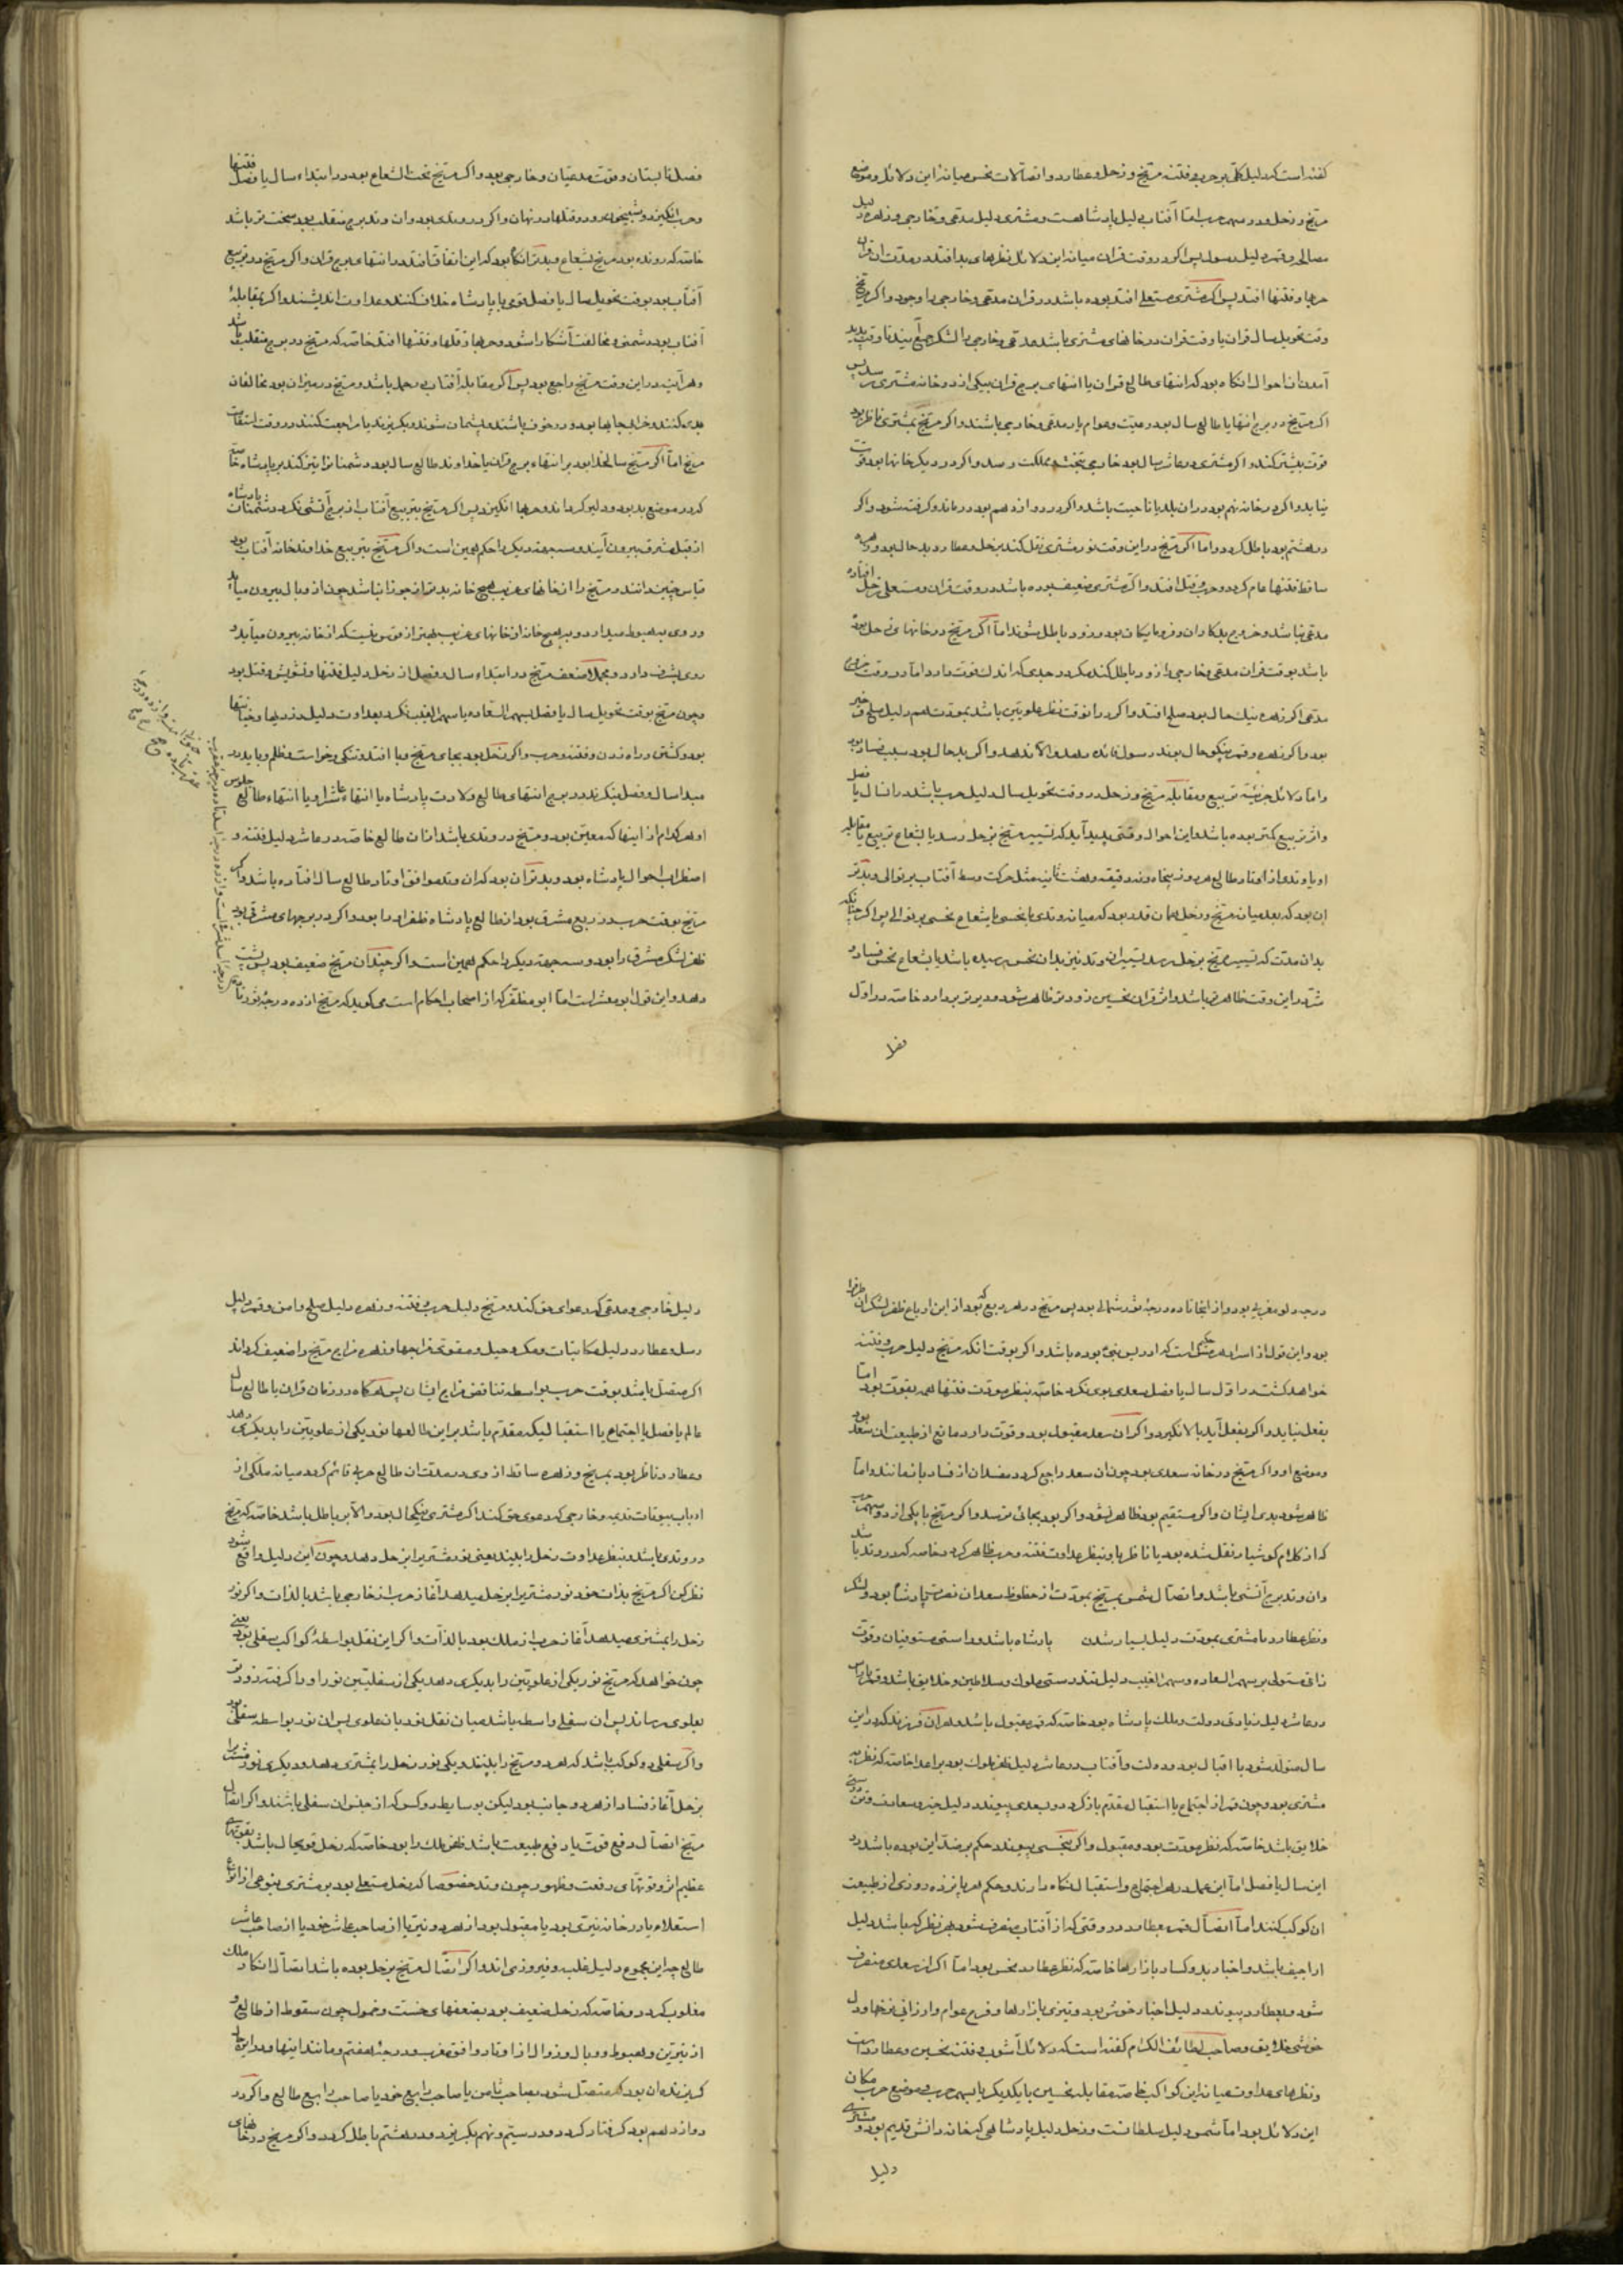 کفته است که دلیل کلی بر حرب و فتنه مریخ و زحل و عطارد و اتصالات نحس میانه این دلائل و موضع
مریخ و زحل و در سهم حرب اما آفتاب دلیل پادشاهست و مشتری دلیل مدعی و خارجی و زهره دلیل
مصالح و قمر دلیل رسول پس اکر در وقت قران میانه این دلائل نظرهای بد افتد در مدت ان قران
حربها و فتنها افتد پس اکر مشتری مستعلی افتد بوده باشد در قران مدعی و خارجی را وجود و اکر مریخ
وقت تحویل سال قران یا وقت قران در خانهای مشتری باشد مدعی و خارجی را لشکر جمع
آمدن ان احوال انکاه بود که انتهای طالع قران یا انتهای برج قران بیکی از دو خانه مشتری رسد پس
اکر مریخ در برج انتها یا طالع سال بود رعیت و عوام یار مدعی و خارجی باشند و اکر مریخ بمشتری ناظر بود
قوت بیشتر کند و اکر مشتری در عاشر سال بود خارجی بتخت و مملکت رسد و اکر در دیکر خانها بود قوت
نیابد و اکر در خانه نهم بود در ان بلد یا ناحیت باشد و اکر در دوازدهم بود درماند و کرفته شود و اکر
در هشتم بود باطل کردد و اما اکر مریخ در این وقت نور مشتری نقل کند بزحل و عطارد بد حال بود و زهره
ساقط فتنها عام کردد و حرب و قتل افتد و اکر مشتری ضعیف بوده باشد در وقت قران و مستعلی زحل افتاده
مدعی نباشد و خروج بدکاران و فرومایکان بود و زود باطل شوند اما اکر مریخ در خانهای زحل بود
باشد بوقت قران مدعی و خارجی را زود باطل کند مکر در جدی که اندک قوت دارد اما در وقت خروج
مدعی اکر زهره نیک حال بود صلح افتد و اکر در انوقت نظر علویین باشد بمودت هم دلیل صلح و خیر
بود و اکر زهره و قمر نیکو حال بوند رسول فائده دهد و الا ندهد و اکر بد حال بود سبب فساد بود
و اما دلائل جزئیه تربیع و مقابله مریخ و زحل در وقت تحویل سال دلیل حرب باشد در ان سال یا فصل
و اثر تربیع کمتر بوده باشد و این احوال وقتی پدید آید که تسییر مریخ بزحل رسد یا بشعاع تربیع یا مقابله
او یا وتدی از اوتاد طالع هر روز پنجاه و نه دقیقه و هشت ثانیه مثل حرکت وسط آفتاب بر توالی و بدتر
ان بود که بعد میان مریخ و زحل همان قدر بود که میانه وتدی با نحسی یا شعاع نحسی بر توالی پس اکر چنانکه
بدان مدت که تسییر مریخ بزحل رسد تسییر ان وتد نیز بدان نحس رسیده باشد یا بشعاع نحس فساد و
شر در این وقت ظاهرتر باشد و اثر قران نحسین زودتر ظاهر شود و دیرتر بردارد خاصه در اول
فصل
فصل تابستان و قوت مدعیان و خارجی بود و اکر مریخ تحت الشعاع بود در ابتداء سال یا فصل فتنها
و حرب انکیزد و شبیخون بود و قتلها در نهان و اکر در وتدی بود و ان وتد برج منقلب بود سخت تر باشد
خاصه که رونده بود مریخ بشعاع و بدتر انکاه بود که این اتفاقات افتد در انتهای برج قران و اکر مریخ در تربیع
آفتاب بود بوقت تحویل سال یا فصل قوی با پادشاه خلاف کنند و عداوت اندیشند و اکر بمقابله
آفتاب بود دشمنی و مخالفت آشکارا شود و حربها و قتلها و فتنها افتد خاصه که مریخ در برج منقلب باشد
وهر آینه در این وقت مریخ راجع بود پس اکر مقابله آفتاب در حمل باشد و مریخ در میزان بود مخالفان
بدی کنند و خراب جایها بود و در خوف باشند و پشیمان شوند و بکریزند یا مراجعت کنند در وقت استقامت
مریخ اما اکر مریخ سالخدا بود بر انتهاء برج قران یا خداوند طالع سال بود دشمنان را تیز کند بر پادشاه خاصه
که در موضع بد بود و دلیر کرداند و حربها انکیزد پس اکر مریخ بتربیع آفتاب از برج آتشی نکرد دشمنان پادشاه
از قبل مشرق بیرون آیند و سه جهت دیکر را حکم همین است و اکر مریخ بتربیع خداوند خانه آفتاب بود
قیاس چنین دانند و مریخ را از خانهای غریب هیچ خانه بدتر از جوزا نباشد چون از وبال بیرون میآید
و روی بهبوط میآرد و بهیچ خانه از خانهای غریب بهتر از قوس نیست که از خانه بیرون میآید و
روی بشرف دارد و مجملا ضعف مریخ در ابتداء سال و فصل از زحل دلیل فتنها و تشویش و قتل بود
و چون مریخ بوقت تحویل سال یا فصل بسهم السعاده یا سهم الغیب نکرد بعداوت دلیل دزدیها و خیانتها
بود و کشتن و راه زدن و فتنه و حرب و اکر زحل بود بجای مریخ وبا افتد و تنکی و خواست و ظلم و باید در
مبدا سال و فصل بنکرند در برج انتهای طالع ولادت پادشاه یا انتهاء عاشر او یا انتهاء طالع جلوس
او هر کدام از اینها که معین بود و مریخ در وتدی باشد از ان طالع خاصه در عاشر دلیل فتنه و
اضطراب احوال پادشاه بود و بدتر آن بود که ان وتد موافق اوتاد طالع سال افتاده باشد و اکر
مریخ بوقت حرب در ربع مشرق بود از طالع پادشاه ظفر او را بود و اکر در برجهای مشرقی بود
ظفر لشکر مشرق را بود و سه جهت دیکر را حکم همین است و اکر چندان مریخ ضعیف بود پس پشت
دهد و این قول ابومعشر است اما ابو مظفر که از اصحاب احکام است می کوید که مریخ از ده درجه ثور تا
درجه دلو مغربی بود و از انجا تا ده درجه ثور شمالی بود پس مریخ در هر ربع که بود از این ارباع ظفر لشکر ان طرف را
بود و این قول از اسرار هرمس حکیم است که ادریس نبی بوده باشد و اکر بوقت انکه مریخ دلیل حرب و فتنه
خواهد کشت در اول سال یا فصل سعدی بوی نکرد خاصه بنظر مودت فتنها هم بقوت بود اما
بفعل نیاید و اکر بفعل آید بالا نکیرد و اکر ان سعد مقبول بود و قوت دارد مانع از طبیعت ان سعد بود
وموضع او و اکر مریخ در خانه سعدی بود چون ان سعد راجع کردد مفسدان از فساد بازمانند و اما
ظاهر شود بدی ایشان و اکر مستقیم بود ظاهر نشود و اکر بود بجائی نرسد و اکر مریخ با یکی از دو سهم حرب
که از کلام کوشیار نقل شده بود یا ناظر باو بنظر عداوت فتنه و حرب ظاهر کردد خاصه که در وتد باشد
وان وتد برج آتشی باشد و اتصال شمس بمریخ بمودت از حظوظ سعدان نصرت پادشا بود و لشکر
ونظر عطارد با مشتری بمودت دلیل بسیار شدن پادشاه باشد و راستی مستوفیان وقوت
زای مستولی بر سهم السعاده وسهم الغیب دلیل تندرستی ملوک و سلاطین و خلایق باشد و قمر
در عاشر دلیل زیادتی دولت و ملک پادشاه بود خاصه که قمر مقبول باشد و هر ان فرزند که در این
سال متولد شود با اقبال بود و دولت و آفتاب در عاشر دلیل ظفر ملوک بود بر اعدا خاصه که نظر به
مشتری بود و چون قمر از اجتماع یا استقبال مقدم باز کردد و بسعدی پیوندد دلیل خیر و سعادت و تندرستی
خلایق باشد خاصه که نظر مودت بود و مقبول و اکر بنحسی پیوندد حکم بر ضد این بوده باشد در
این سال یا فصل اما این عمل در هر اجتماع و استقبال نکاه دارند و حکم هر پانزده روزی از طبیعت
ان کوکب کنند اما اتصال قمر بعطارد در وقتی که از آفتاب منصرف شود بهر نظر که باشد دلیل
اراجیف باشد و اخبار بد و کساد بازارها خاصه که نظر عطارد بنحس بود اما اکر از سعدی منصرف
شود و بعطارد پیوندد دلیل اخبار خوش بود و تیزی بازارها و فرح عوام و ارزانی نرخها و دل
خوشی خلایق و صاحب لطائف الکلام کفته است که دلائل آشوب و فتنه نحسین و عطارد است
ونظرهای عداوت میانه این کواکب خاصه مقابله نحسین با یکدیکر یا بسهم حرب و موضع حرب مکان
این دلائل بود اما شمس دلیل سلطانست و زحل دلیل پادشاهی که خاندانش قدیم بود و مشتری
دلیل
دلیل خارجی و مدعی که دعوای حق کند و مریخ دلیل حرب و فتنه و زهره دلیل صلح و امن و قمر دلیل
رسل و عطارد دلیل مکاتبات و مکر و حیل و مقوی مزاجها و زهره مزاج مریخ را ضعیف کرداند
اکر متصل باشد بوقت حرب بواسطه تناقض مزاج ایشان پس هرکاه در زمان قران یا طالع سال
عالم یا فصل یا اجتماع یا استقبالی که مقدم باشد بر این طالعها نور یکی از علویین را بدیکری دهد
وعطارد ناظر بود بمریخ و زهره ساقط از وی در مدت ان طالع حربی قائم کردد میانه ملکی از
ارباب بیوتات قدیم و خارجی که دعوی حق کند اکر مشتری نیکحال بود و الا بر باطل باشد خاصه که مریخ
در وتدی باشد و بنظر عداوت زحل را بیند یعنی نور مشتری را بزحل دهد و چون این دلیل واقع شود
نظر کن اکر مریخ بذات خود نور مشتری را بزحل میدهد آغاز حرب از خارجی باشد بالذات و اکر نور
زحل را بمشتری میدهد آغاز حرب از ملک بود بالذات و اکر این نقل بواسطه کواکب سفلی بود یعنی
چون خواهد که مریخ نور یکی از علویین را بدیکری دهد یکی از سفلیین نور او را کرفته زودتر
بعلوی رساند پس ان سفلی واسطه باشد میان نقل نور بان علوی پس ان نور بواسطه سفلی بود
واکر سفلی دو کوکب باشد که هر دو مریخ را بینند و یکی نور زحل را بمشتری دهد و دیکری نور مشتری را
بزحل آغاز فساد از هر دو جانب بود لیکن بوساطت دو کس که از جنس ان سفلی باشند و اکر اتصال
مریخ اتصال دفع قوت یا دفع طبیعت باشد ظفر ملک را بود خاصه که زحل قویحال باشد بقوتهای
عظیم اثر و قوتهای رفعت و ظهور چون وتد خصوصا که زحل مستعلی بود بر مشتری بنوعی از انواع
استعلاء یا در خانه نیری بود یا مقبول بود از هر دو نیر یا از صاحب عاشر خود یا از صاحب عاشر
طالع چه این مجموع دلیل غلبه و فیروزی اند و اکر اتصال مریخ بزحل بوده باشد اتصال انکار ملک
مغلوب کردد و خاصه که زحل ضعیف بود بضعفهای خست و خمول چون سقوط از طالع و
از نیرین و هبوط و وبال و زوال از اوتاد و افق غرب و درجه هفتم و مانند اینها و در این حال
کریزنده ان بود که متصل شود بصاحب ثامن یا صاحب رابع خود یا صاحب رابع طالع و اکر در
دوازدهم بود کرفتار کردد و در سیم و نهم بکریزد و در هشتم باطل کردد و اکر مریخ در خانهای